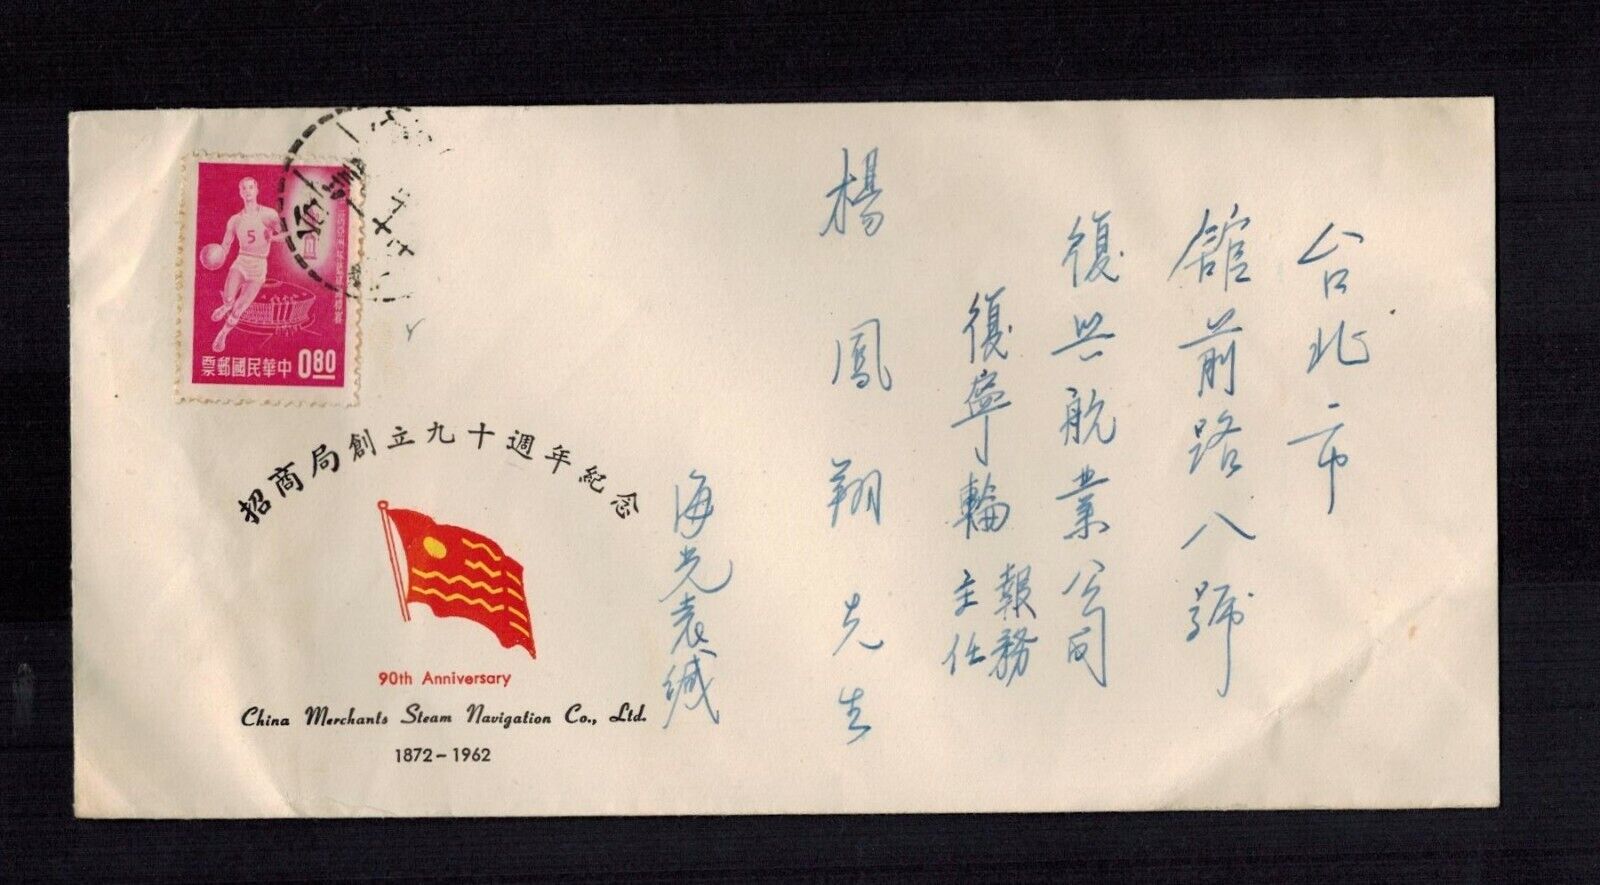 台北市
舘前路八號
復興航業公司
復寧輪 報務主任
楊鳳翔先生
海光袁緘
5
0.80 中華民國郵票
招商局創立九十週年紀念
90th Anniversary
China Merchants Steam Navigation Co., Ltd.
1872-1962